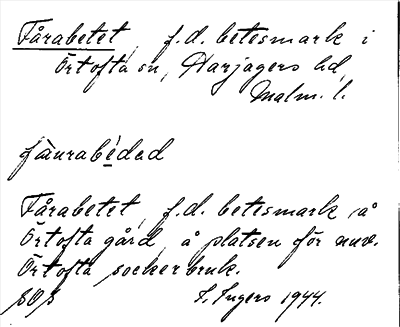 Fårabetet, f.d. betesmark i
Örtofta sn, Harjagers hd,
Malm. l.
fàurabéded
Fårabetet, f.d. betesmark å
Örtofta gård, å platsen för nuv.
Örtofta sockerbruk.
I. Ingers 1944.